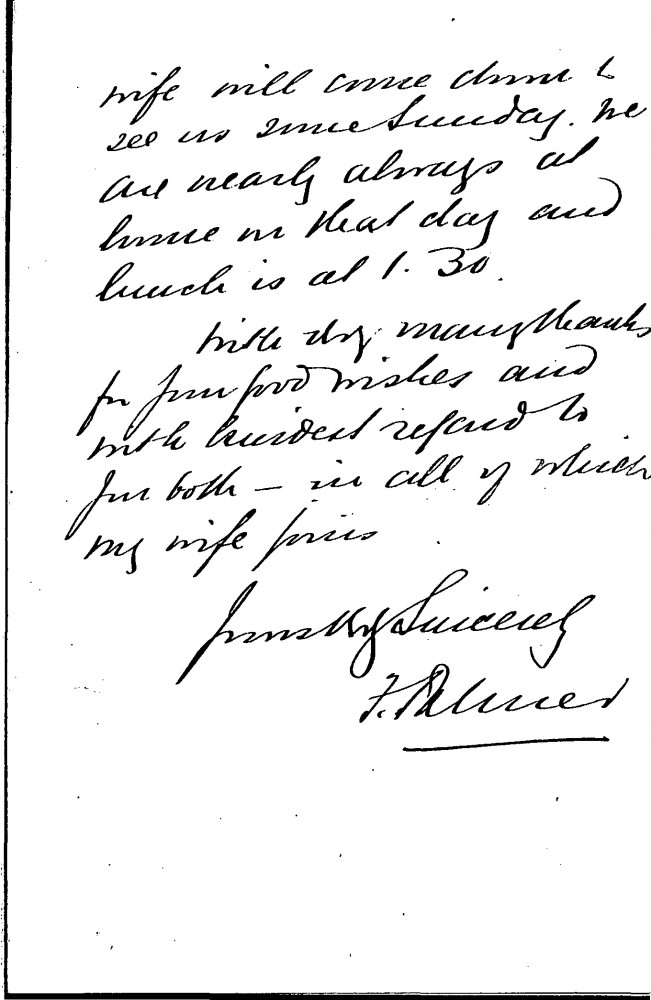 wife will come down to
see us some Sunday. We
are nearly always at
home on that day and
lunch is at 1.30.
With very many thanks
for your good wishes and
with kindest regard to
you both – in all of which
my wife joins
Yours very Sincerely
F. Palmer